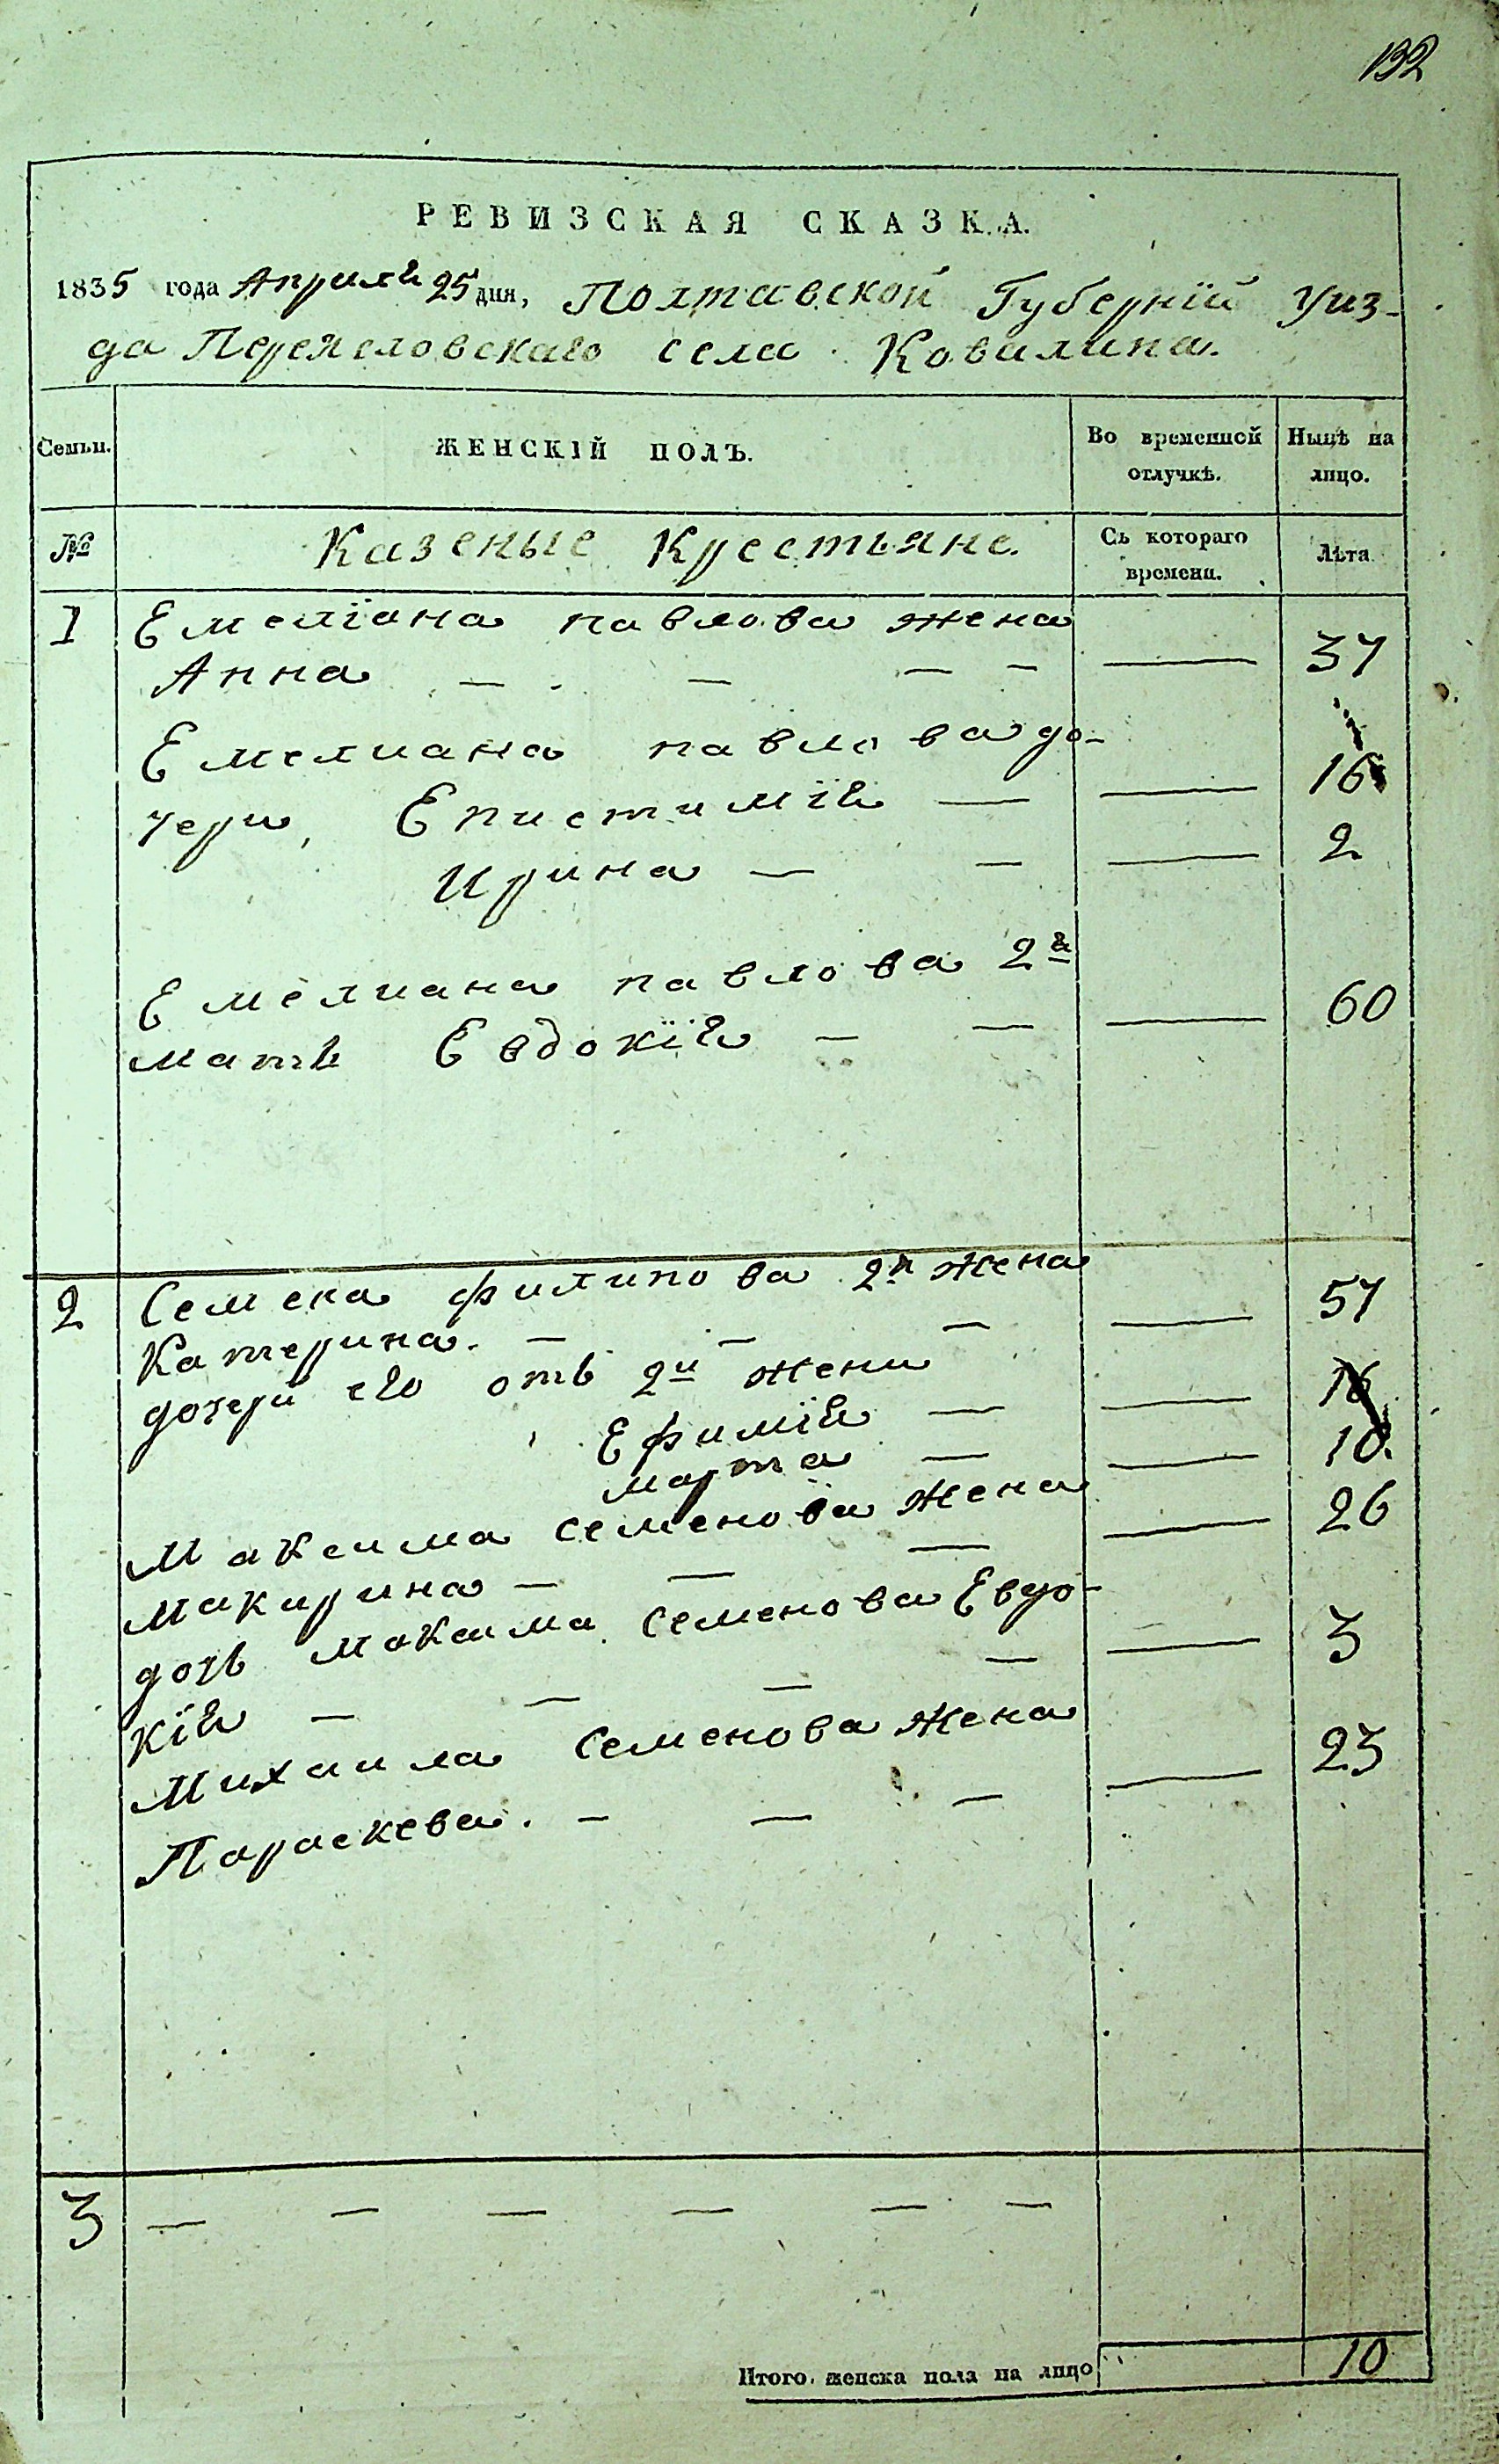 132
РЕВИЗСКАЯ СКАЗКА.
1835 года Апреля 25 дня, Полтавской Губернїи Уиз-
да Переяеловскаго села Ковалина.
Семьи. ЖЕНСКІЙ ПОЛЪ. Во временной отлучкѣ. Нынѣ на лицо.
№ Казеные Крестьяне. Съ котораго времени. Лѣта
1 Емелїана павлова жена
Анна — — — — — 37
Емелиана павлова до-
чери, Епистимїя — — 16
Ирина — — — 2
Емелиана павлова 2я
мать Евдокїя — — — 60
2 Семена филипова 2я жена
Катерина. — — — — 57
дочери его отъ 2й жени
Ефимїя — —
марта — — 10.
Максима семенова жена
макирина — — — — 26
дочь максима семенова Евдо-
кїя — — — — — 3
Михаила семенова жена
Параскева. — — — — 23
3 — — — — — —
Итого женска пола на лицо 10